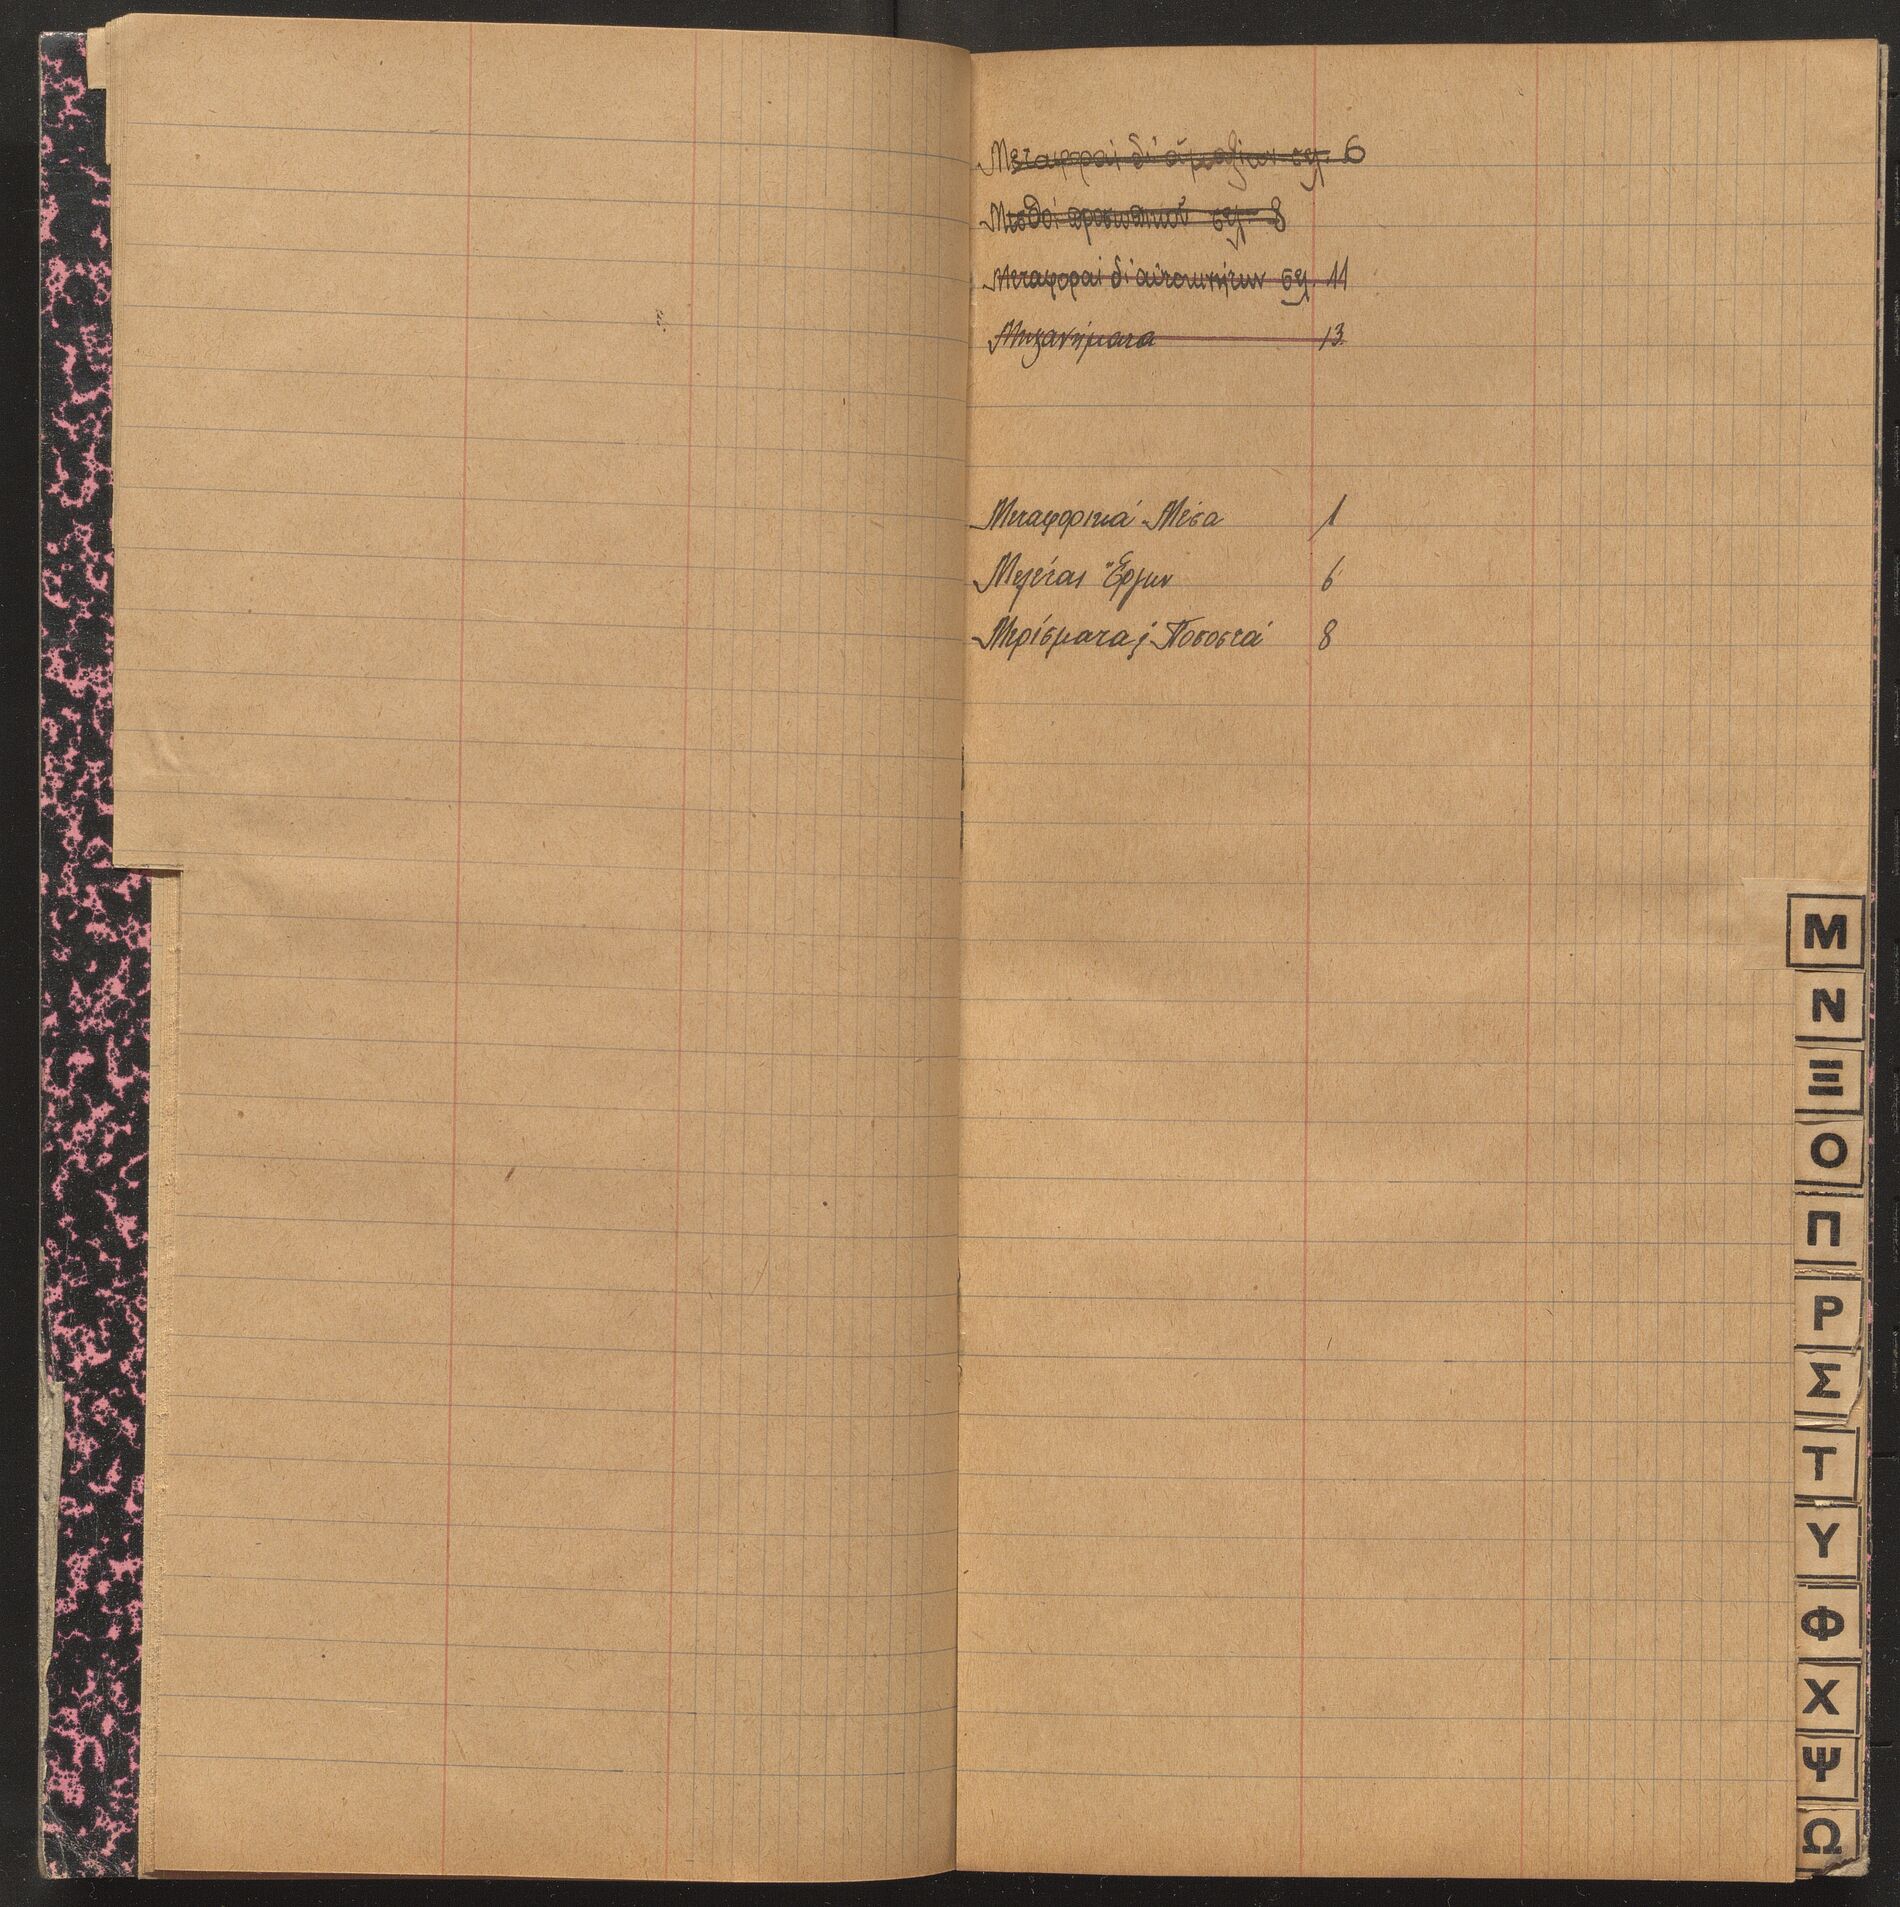 Μεταφοραί δι' ἁμαξίων σελ. 6
Μισθοί προσωπικοῦ σελ. 8
Μεταφοραί δι' αὐτοκινήτων σελ. 11
Μηχανήματα 13
Μεταφορικά Μέσα 1
Μελέται Ἔργων 6
Μερίσματα Ποσοστά 8
Μ
Ν
Ξ
Ο
Π
Ρ
Σ
Τ
Υ
Φ
Χ
Ψ
Ω